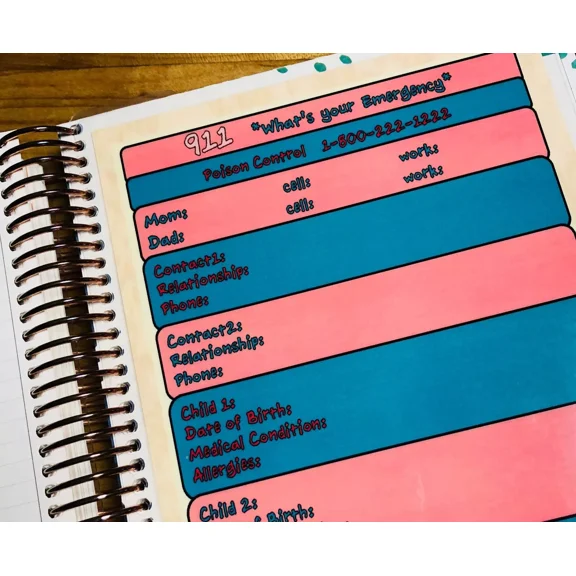 911 *What's your Emergency*
Poison Control 1-800-222-1222
Mom: cell: work:
Dad: cell: work:
Contact1:
Relationship:
Phone:
Contact2:
Relationship:
Phone:
Child 1:
Date of Birth:
Medical Condition:
Allergies:
Child 2:
of Birth: